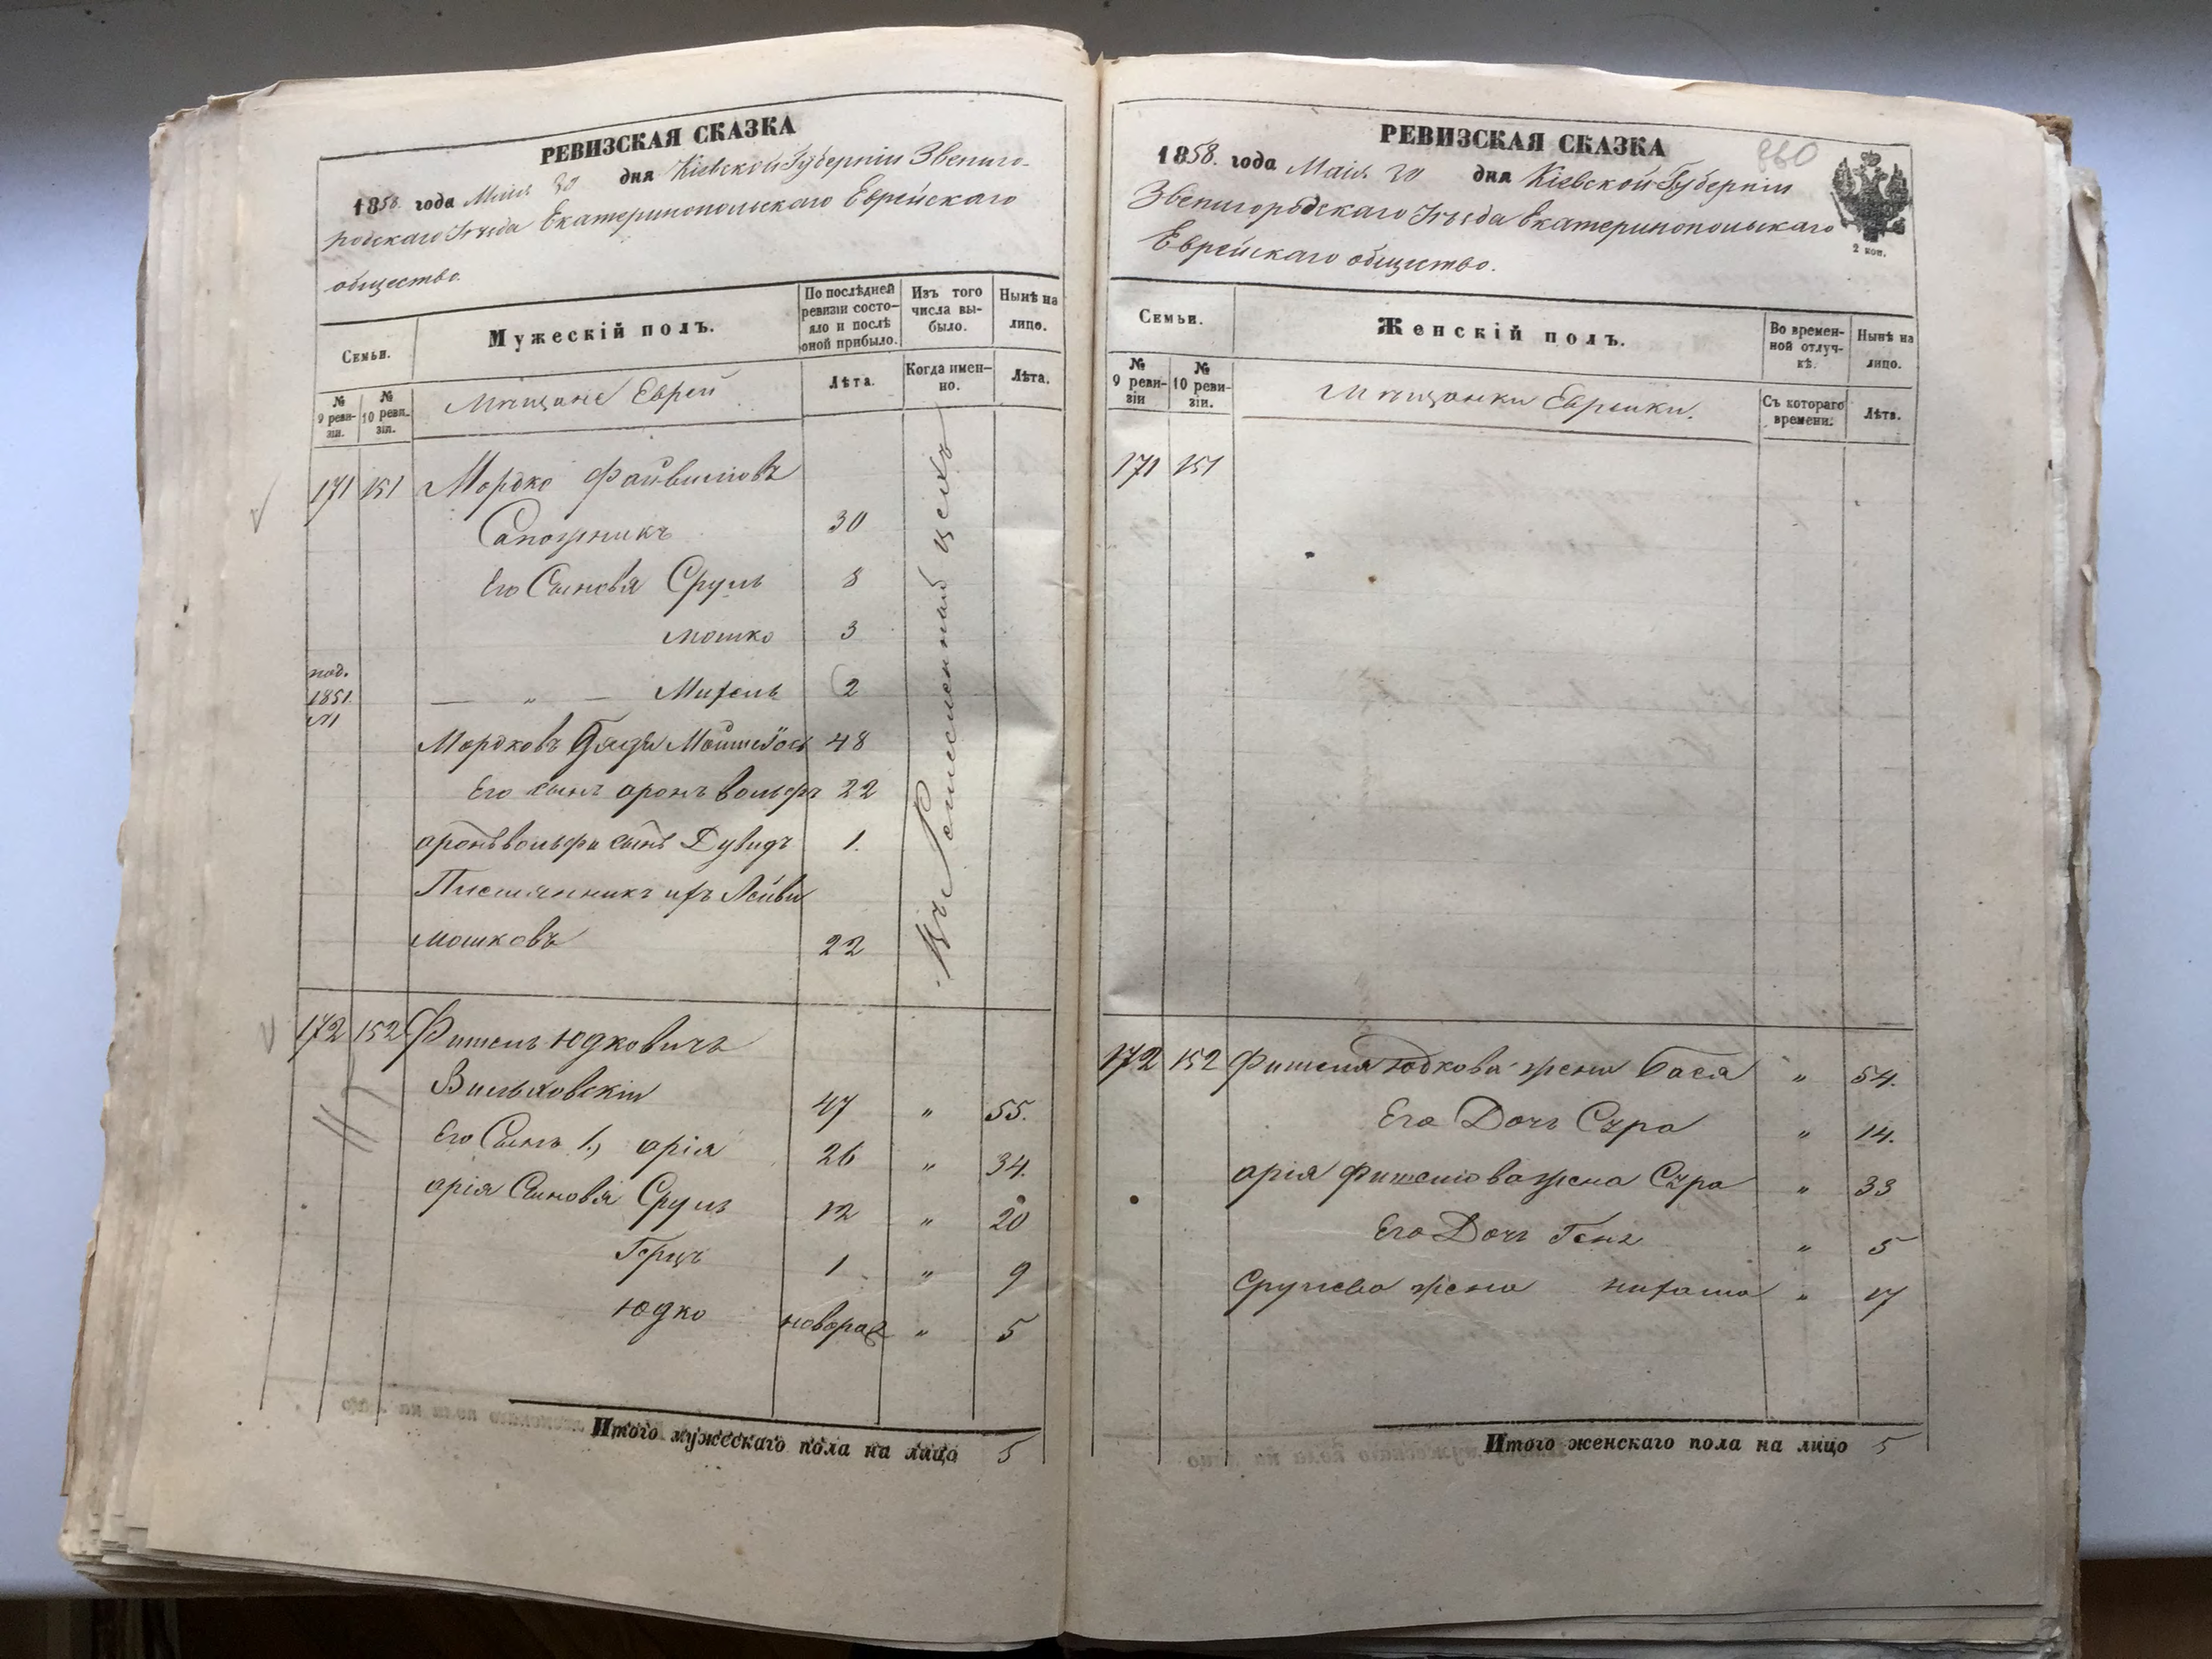 РЕВИЗСКАЯ СКАЗКА
1858. года Маія 20 дня Кіевской Губерніи Звениго-
родскаго Уѣзда Екатеринопольскаго Еврейскаго
общество.
Семьи.
Мужескій полъ.
По послѣдней ревизіи состо-яло и послѣ оной прибыло.
Изъ того числа вы-было.
Нынѣ на лицо.
№ 9 реви-зіи.
№ 10 реви-зіи.
Мѣщане Евреи
Лѣта.
Когда имен-но.
Лѣта.
171 151 Мордко Файвишовъ
Сапожникъ 30
Его Сыновья Сруль 8
Мошко 3
1851
№1
— „ — 2
Мордковъ Дядя 48
Его сынъ Аронъ Вольфъ 22
Аронъ Вольфа сынъ Дувидъ 1.
Племянникъ ихъ Лейви
Мошковъ 22
Въ Ремесленный цехъ
172 152 Фишель Юдковичъ
Вильховскій 47 „ 55.
Его Сынъ 1., Арія 26 „ 34.
Арія Сыновья Сруль 12 „ 20
Герцъ 1 „ 9
Юдко „ 5
Итого мужескаго пола на лицо 5
РЕВИЗСКАЯ СКАЗКА
860
1858. года Маія 20 дня Кіевской Губерніи
Звенигородскаго Уѣзда Екатеринопольскаго
Еврейскаго общество.
2 коп.
Семьи.
Женскій полъ.
Во времен-ной отлуч-кѣ.
Нынѣ на лицо.
№ 9 реви-зіи
№ 10 реви-зіи.
Мѣщанки Еврейки.
Съ котораго времени.
Лѣта.
171 151
172 152 Фишеля Юдкова жена Бася „ 54.
Его Дочь Сура „ 14.
Арія Фишелева жена Сура „ 33
Его Дочь Геня „ 5
Срулева жена „ 17
Итого женскаго пола на лицо 5